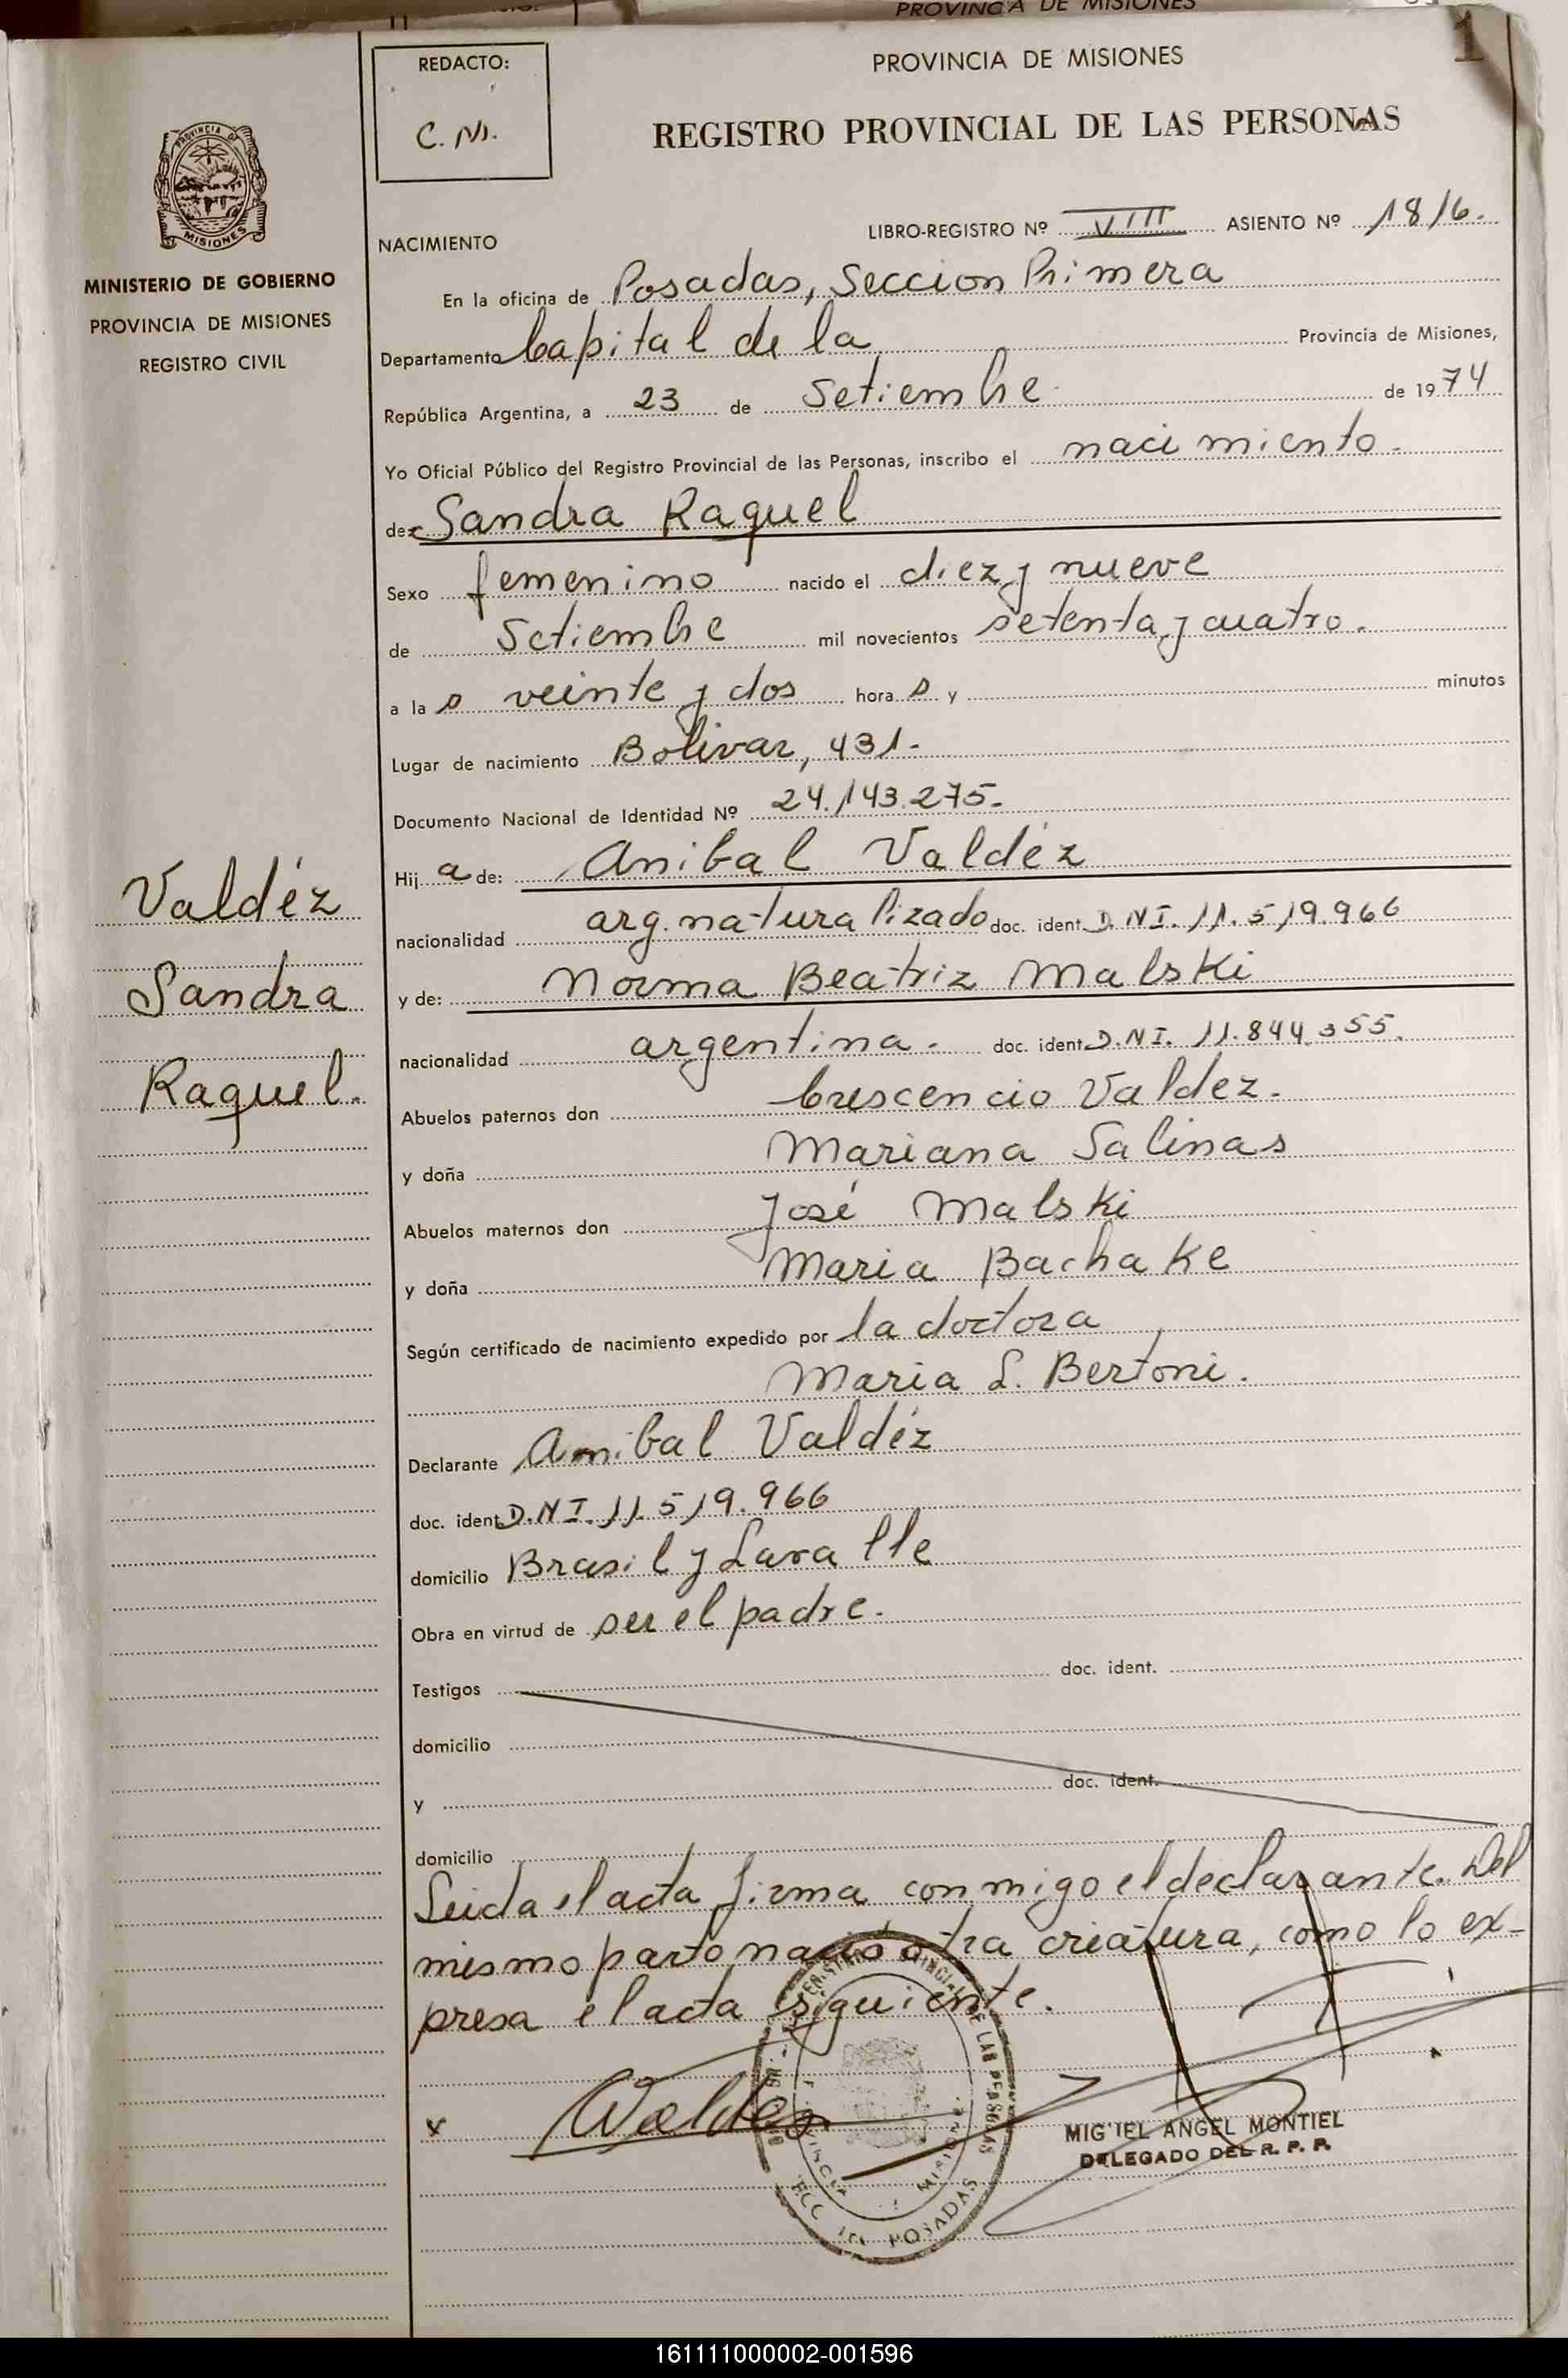 PROVINCIA DE MISIONES
1
REDACTO:
C. N.
PROVINCIA DE MISIONES
REGISTRO PROVINCIAL DE LAS PERSONAS
PROVINCIA DE
MISIONES
MINISTERIO DE GOBIERNO
PROVINCIA DE MISIONES
REGISTRO CIVIL
LIBRO-REGISTRO Nº VIII ASIENTO Nº 1816.
NACIMIENTO
En la oficina de Posadas, Seccion Primera
Departamento Capital de la Provincia de Misiones,
República Argentina, a 23 de Setiembre de 1974
Yo Oficial Público del Registro Provincial de las Personas, inscribo el nacimiento.
de: Sandra Raquel
Sexo femenino nacido el diez y nueve
de Setiembre mil novecientos setenta y cuatro.
a la s veinte y dos hora s y minutos
Lugar de nacimiento Bolivar, 431.-
Documento Nacional de Identidad Nº 24.143.275.-
Hij a de: Anibal Valdéz
nacionalidad arg. naturalizado doc. ident. D.N.I. 11.519.966
y de: Norma Beatriz Malski
nacionalidad argentina. doc. ident. D.N.I. 11.844.355.
Abuelos paternos don Crescencio Valdez.
y doña Mariana Salinas
Abuelos maternos don José Malski
y doña Maria Bachake
Según certificado de nacimiento expedido por la doctora
Maria L. Bertoni.
Declarante Anibal Valdéz
doc. ident. D.N.I. 11.519.966
domicilio Brasil y Lavalle
Obra en virtud de ser el padre.
Testigos doc. ident.
domicilio
y doc. ident.
domicilio
Leida el acta firma conmigo el declarante. Del
mismo parto nació otra criatura, como lo ex-
presa el acta siguiente.
Valdéz
Sandra
Raquel.
x Valdez
MIGUEL ANGEL MONTIEL
DELEGADO DEL R. P. P.
POSADAS
161111000002-001596